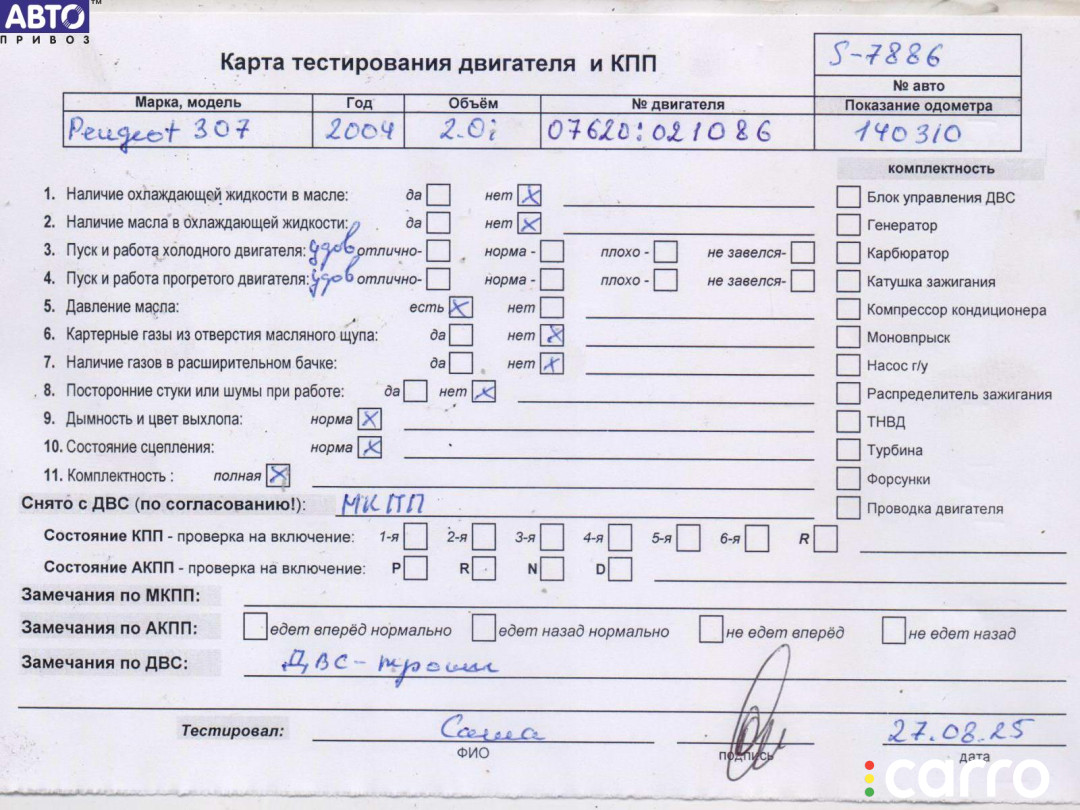 АВТО™
ПРИВОЗ
Карта тестирования двигателя и КПП
S-7886
№ авто
Марка, модель Год Объём № двигателя Показание одометра
Peugeot 307 2004 2.0i 07620:021086 140310
комплектность
1. Наличие охлаждающей жидкости в масле: да нет X Блок управления ДВС
2. Наличие масла в охлаждающей жидкости: да нет X Генератор
3. Пуск и работа холодного двигателя: удов отлично- норма - плохо - не завелся- Карбюратор
4. Пуск и работа прогретого двигателя: удов отлично- норма - плохо - не завелся- Катушка зажигания
5. Давление масла: есть X нет Компрессор кондиционера
6. Картерные газы из отверстия масляного щупа: да нет X Моновпрыск
7. Наличие газов в расширительном бачке: да нет X Насос г/у
8. Посторонние стуки или шумы при работе: да нет X Распределитель зажигания
9. Дымность и цвет выхлопа: норма X ТНВД
10. Состояние сцепления: норма X Турбина
11. Комплектность : полная X Форсунки
Снято с ДВС (по согласованию!): МКПП Проводка двигателя
Состояние КПП - проверка на включение: 1-я 2-я 3-я 4-я 5-я 6-я R
Состояние АКПП - проверка на включение: P R N D
Замечания по МКПП:
Замечания по АКПП: едет вперёд нормально едет назад нормально не едет вперёд не едет назад
Замечания по ДВС: ДВС-троит
Тестировал: Саша 27.08.25
ФИО подпись дата
carro